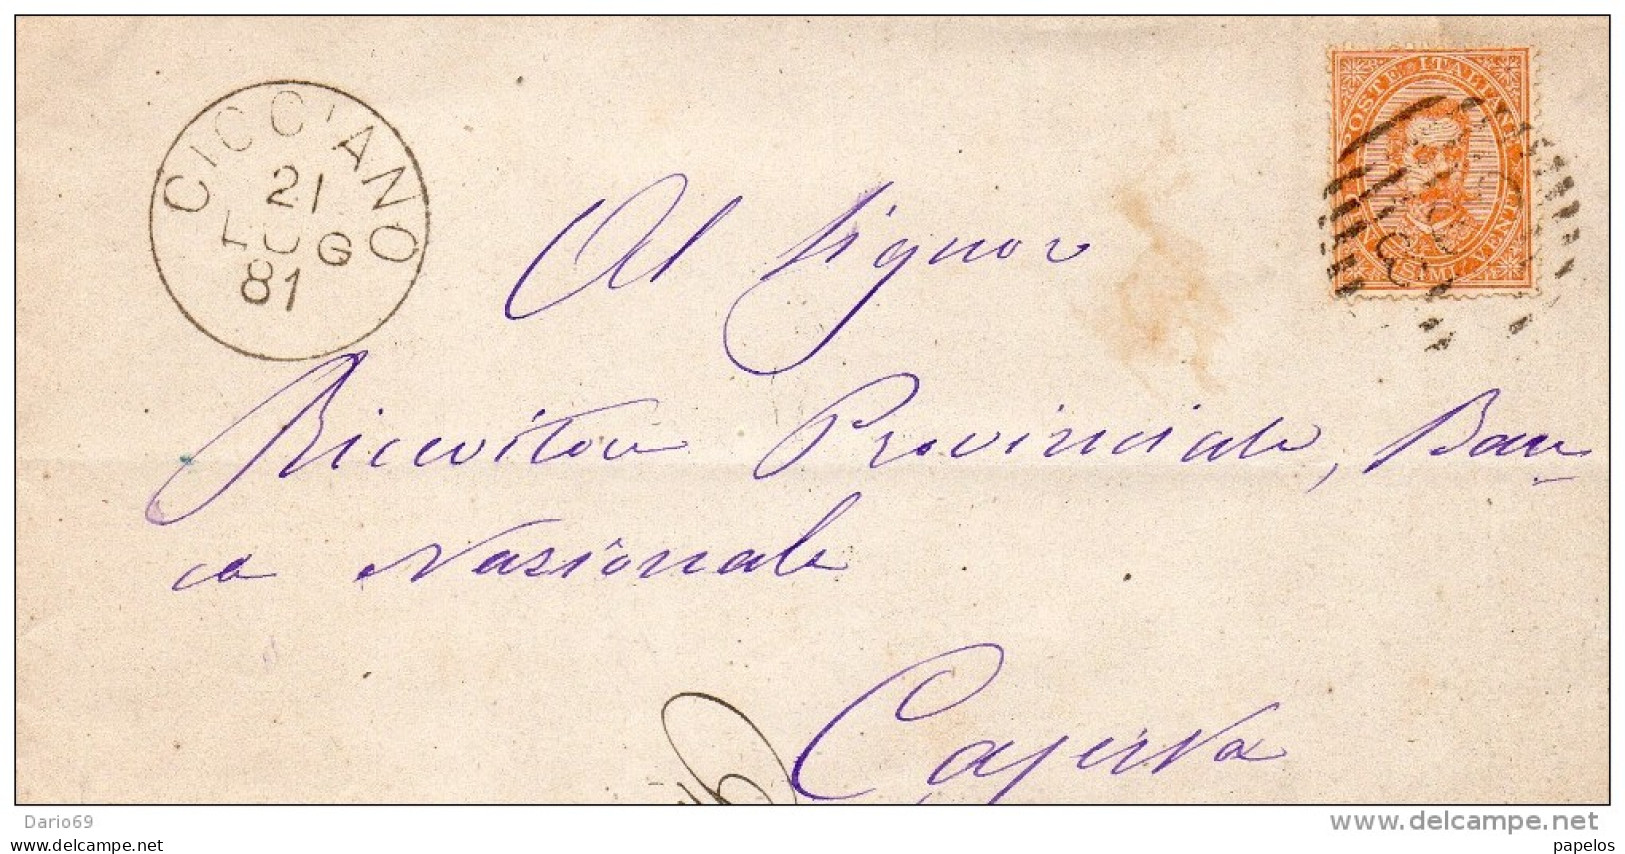 CICC'ANO
21
LUG
81
POSTE ITALIANE
CENTESIMI VENTI
Al Signor
Ricevitore Provinciale, Ban-
ca Nazionale
Caserta
Dario69
www.delcampe.net
papelos